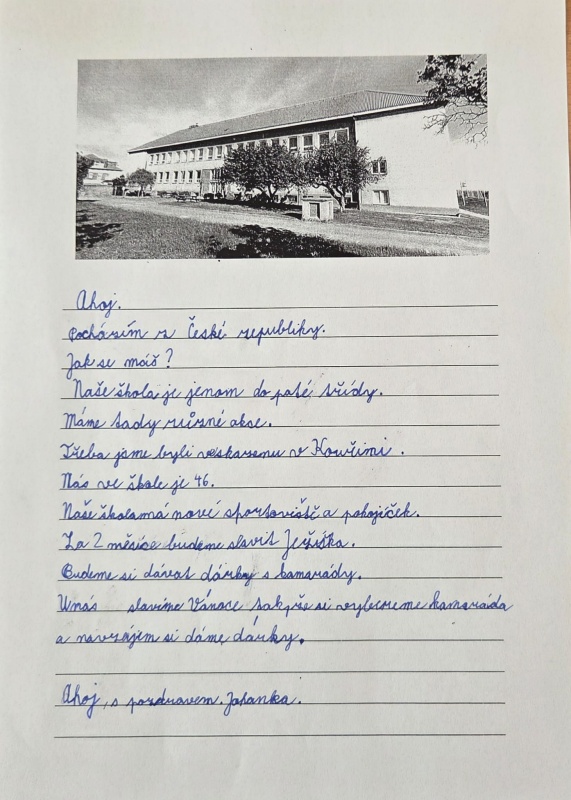 Ahoj.
Pocházím z České republiky.
Jak se máš?
Naše škola je jenom do páté třídy.
Máme tady různé akce.
Třeba jsme byli ve skanzenu v Kouřimi.
Nás ve škole je 46.
Naše škola má nové sportoviště a pokojíček.
Za 2 měsíce budeme slavit Ježíška.
Budeme si dávat dárky s kamarády.
U nás slavíme Vánoce tak, že si vylosujeme kamaráda
a navzájem si dáme dárky.
Ahoj, s pozdravem. Johanka.